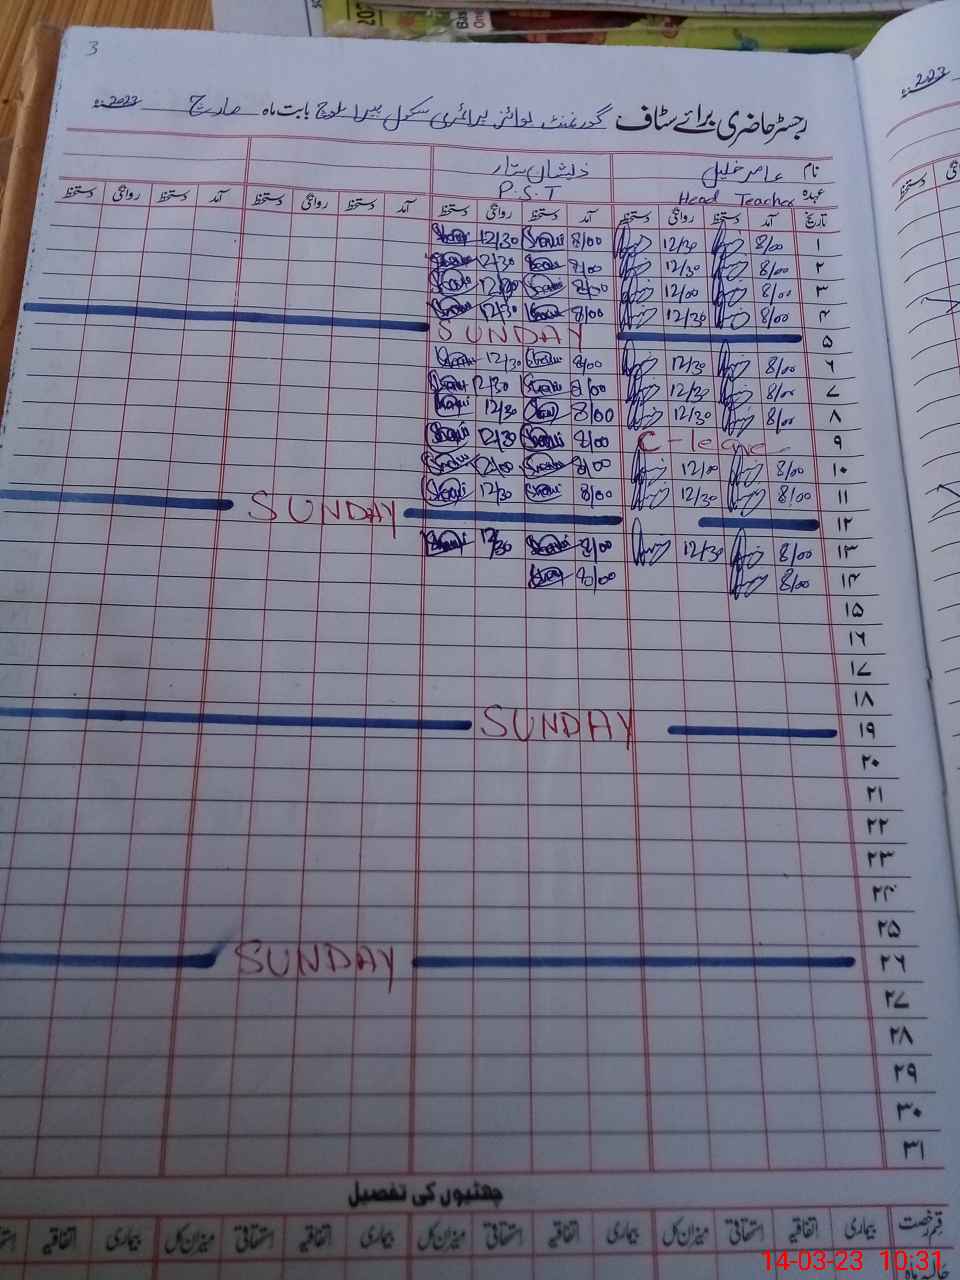 3
رجسٹر حاضری برائے سٹاف گورنمنٹ بوائز پرائمری سکول میرا بابت ماہ مارچ 2023
نام عامر خلیل ذیشان ستار
عہدہ Head Teacher P.S.T
تاریخ آمد دستخط روانگی دستخط آمد دستخط روانگی دستخط آمد دستخط روانگی دستخط آمد دستخط روانگی دستخط
۱ 8/00 12/30 8/00 12/30
۲ 8/00 12/30 8/00 12/30
۳ 8/00 12/00 8/00 12/00
۴ 8/00 12/30 8/00 12/30
۵ SUNDAY
۶ 8/00 12/30 8/00 12/30
۷ 8/00 12/30 8/00 12/30
۸ 8/00 12/30 8/00 12/30
۹ C-leave 8/00 12/30
۱۰ 8/00 12/00 8/00 12/00
۱۱ 8/00 12/30 8/00 12/30
۱۲ SUNDAY
۱۳ 8/00 12/30 8/00 12/30
۱۴ 8/00 8/00
۱۵
۱۶
۱۷
۱۸
۱۹ SUNDAY
۲۰
۲۱
۲۲
۲۳
۲۴
۲۵
۲۶ SUNDAY
۲۷
۲۸
۲۹
۳۰
۳۱
چھٹیوں کی تفصیل
قسم رخصت بیماری اتفاقیہ استحقاقی میزان کل بیماری اتفاقیہ استحقاقی میزان کل بیماری اتفاقیہ استحقاقی میزان کل بیماری اتفاقیہ
14-03-23 10:31